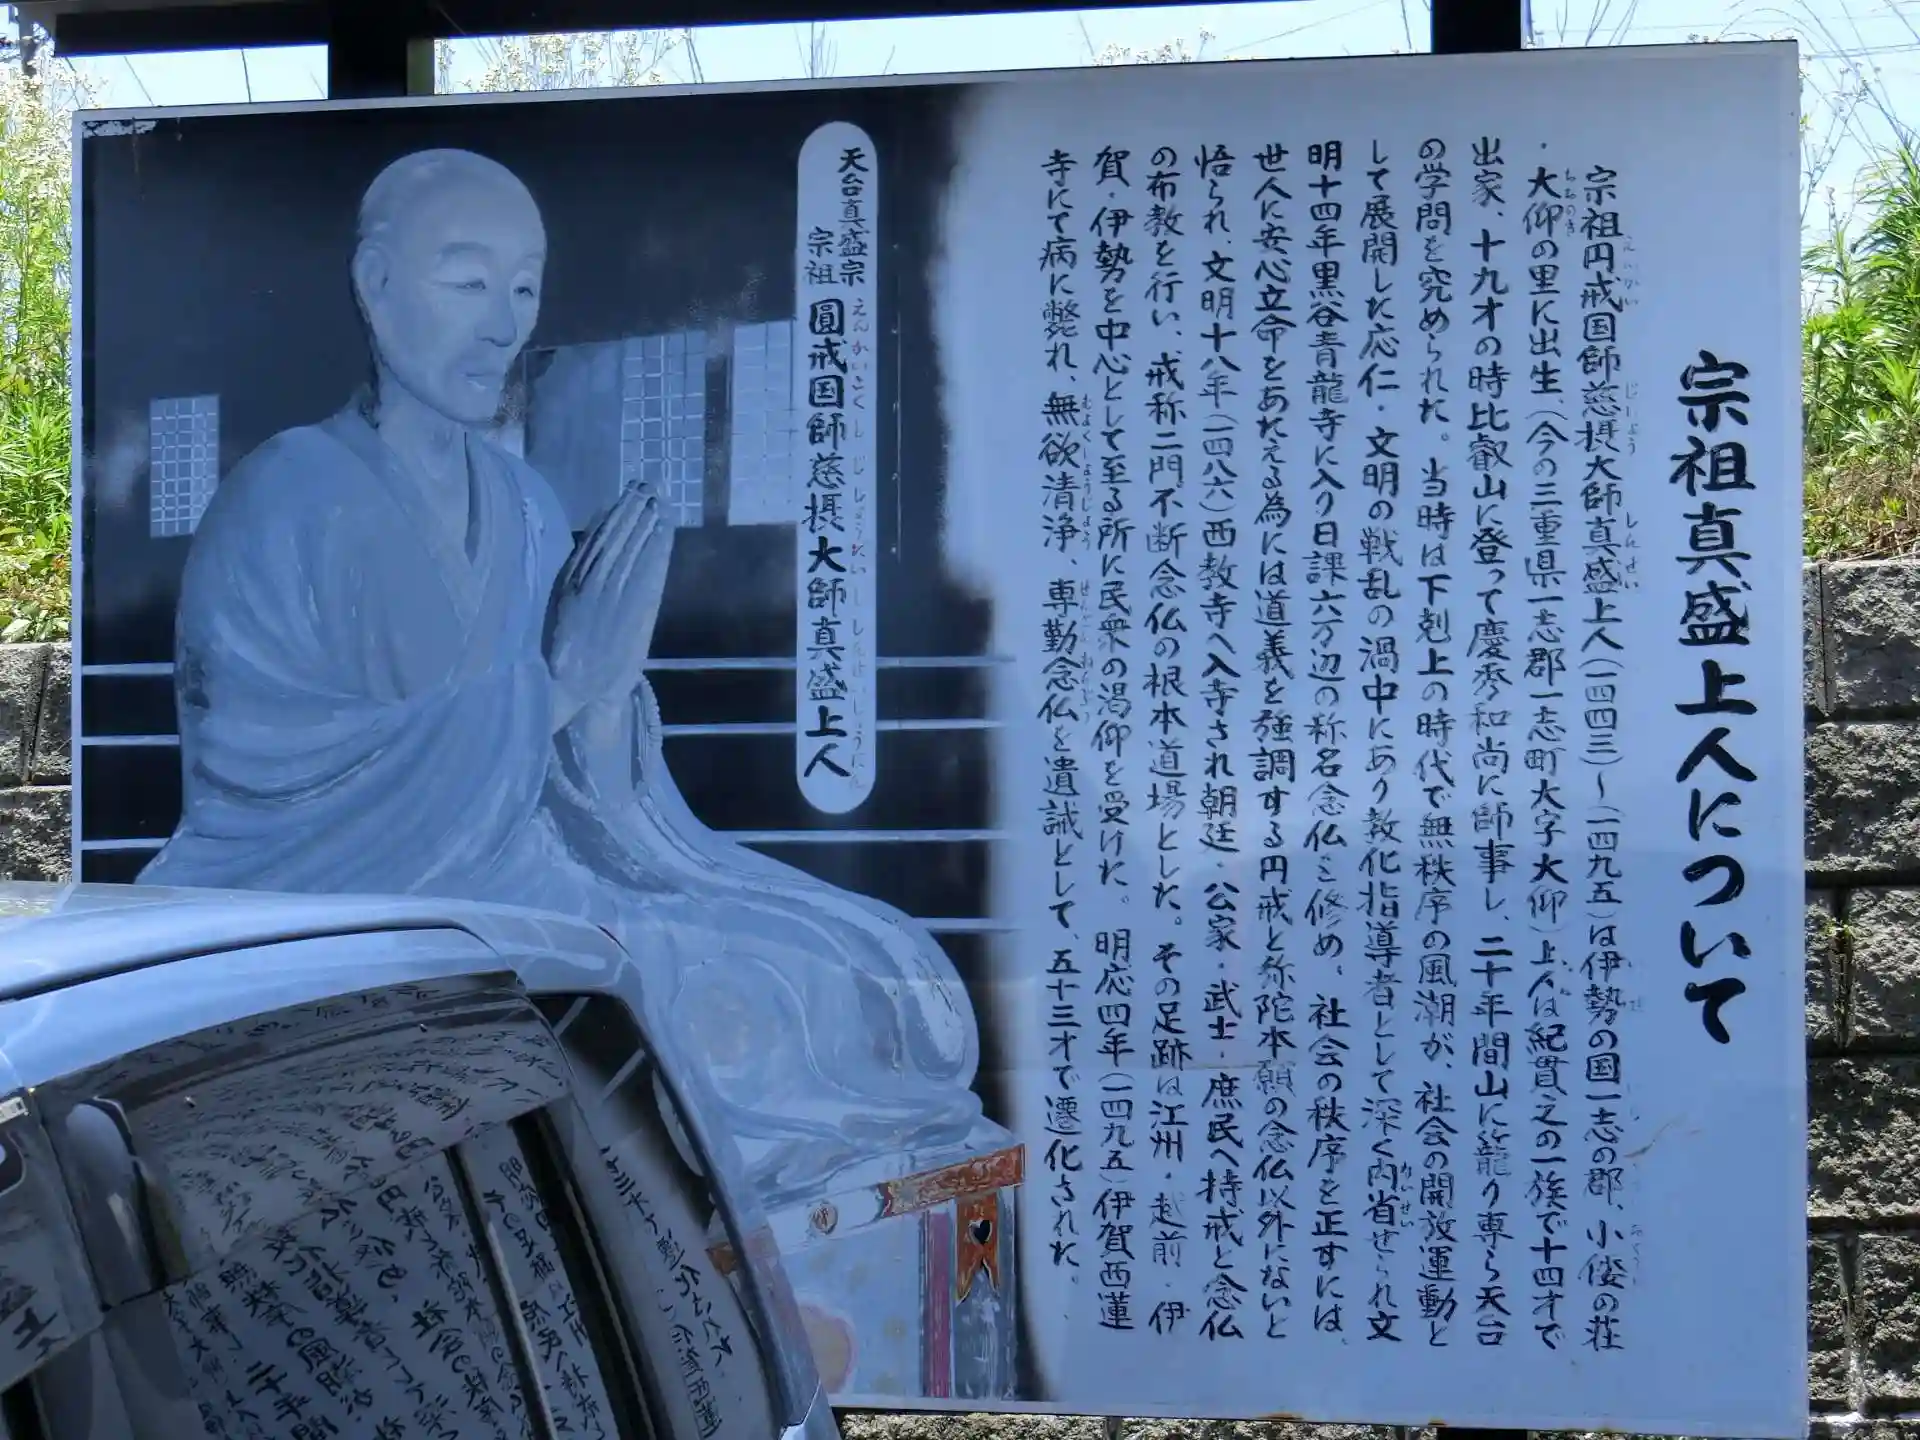 宗祖真盛上人について
宗祖円戒国師慈摂大師真盛上人(一四四三)〜(一四九五)は伊勢の国一志の郡、小倭の荘
・大仰の里に出生、(今の三重県一志郡一志町大字大仰)上人は紀貫之の一族で十四才で
出家、十九才の時比叡山に登って慶秀和尚に師事し、二十年間山に籠り専ら天台
の学問を究められた。当時は下剋上の時代で無秩序の風潮が、社会の開放運動と
して展開した応仁・文明の戦乱の渦中にあり教化指導者として深く内省せられ文
明十四年黒谷青龍寺に入り日課六万辺の称名念仏を修め、社会の秩序を正すには、
世人に安心立命をあたえる為には道義を強調する円戒と弥陀本願の念仏以外にないと
悟られ、文明十八年(一四八六)西教寺へ入寺され朝廷・公家・武士・庶民へ持戒と念仏
の布教を行い、戒称二門不断念仏の根本道場とした。その足跡は江州・越前・伊
賀・伊勢を中心として至る所に民衆の渇仰を受けた。明応四年(一四九五)伊賀西蓮
寺にて病に斃れ、無欲清浄、専勤念仏を遺誡として、五十三才で遷化された。
天台真盛宗
宗祖 圓戒国師慈摂大師真盛上人
えんかいこくし じしょうだいし しんせいしょうにん